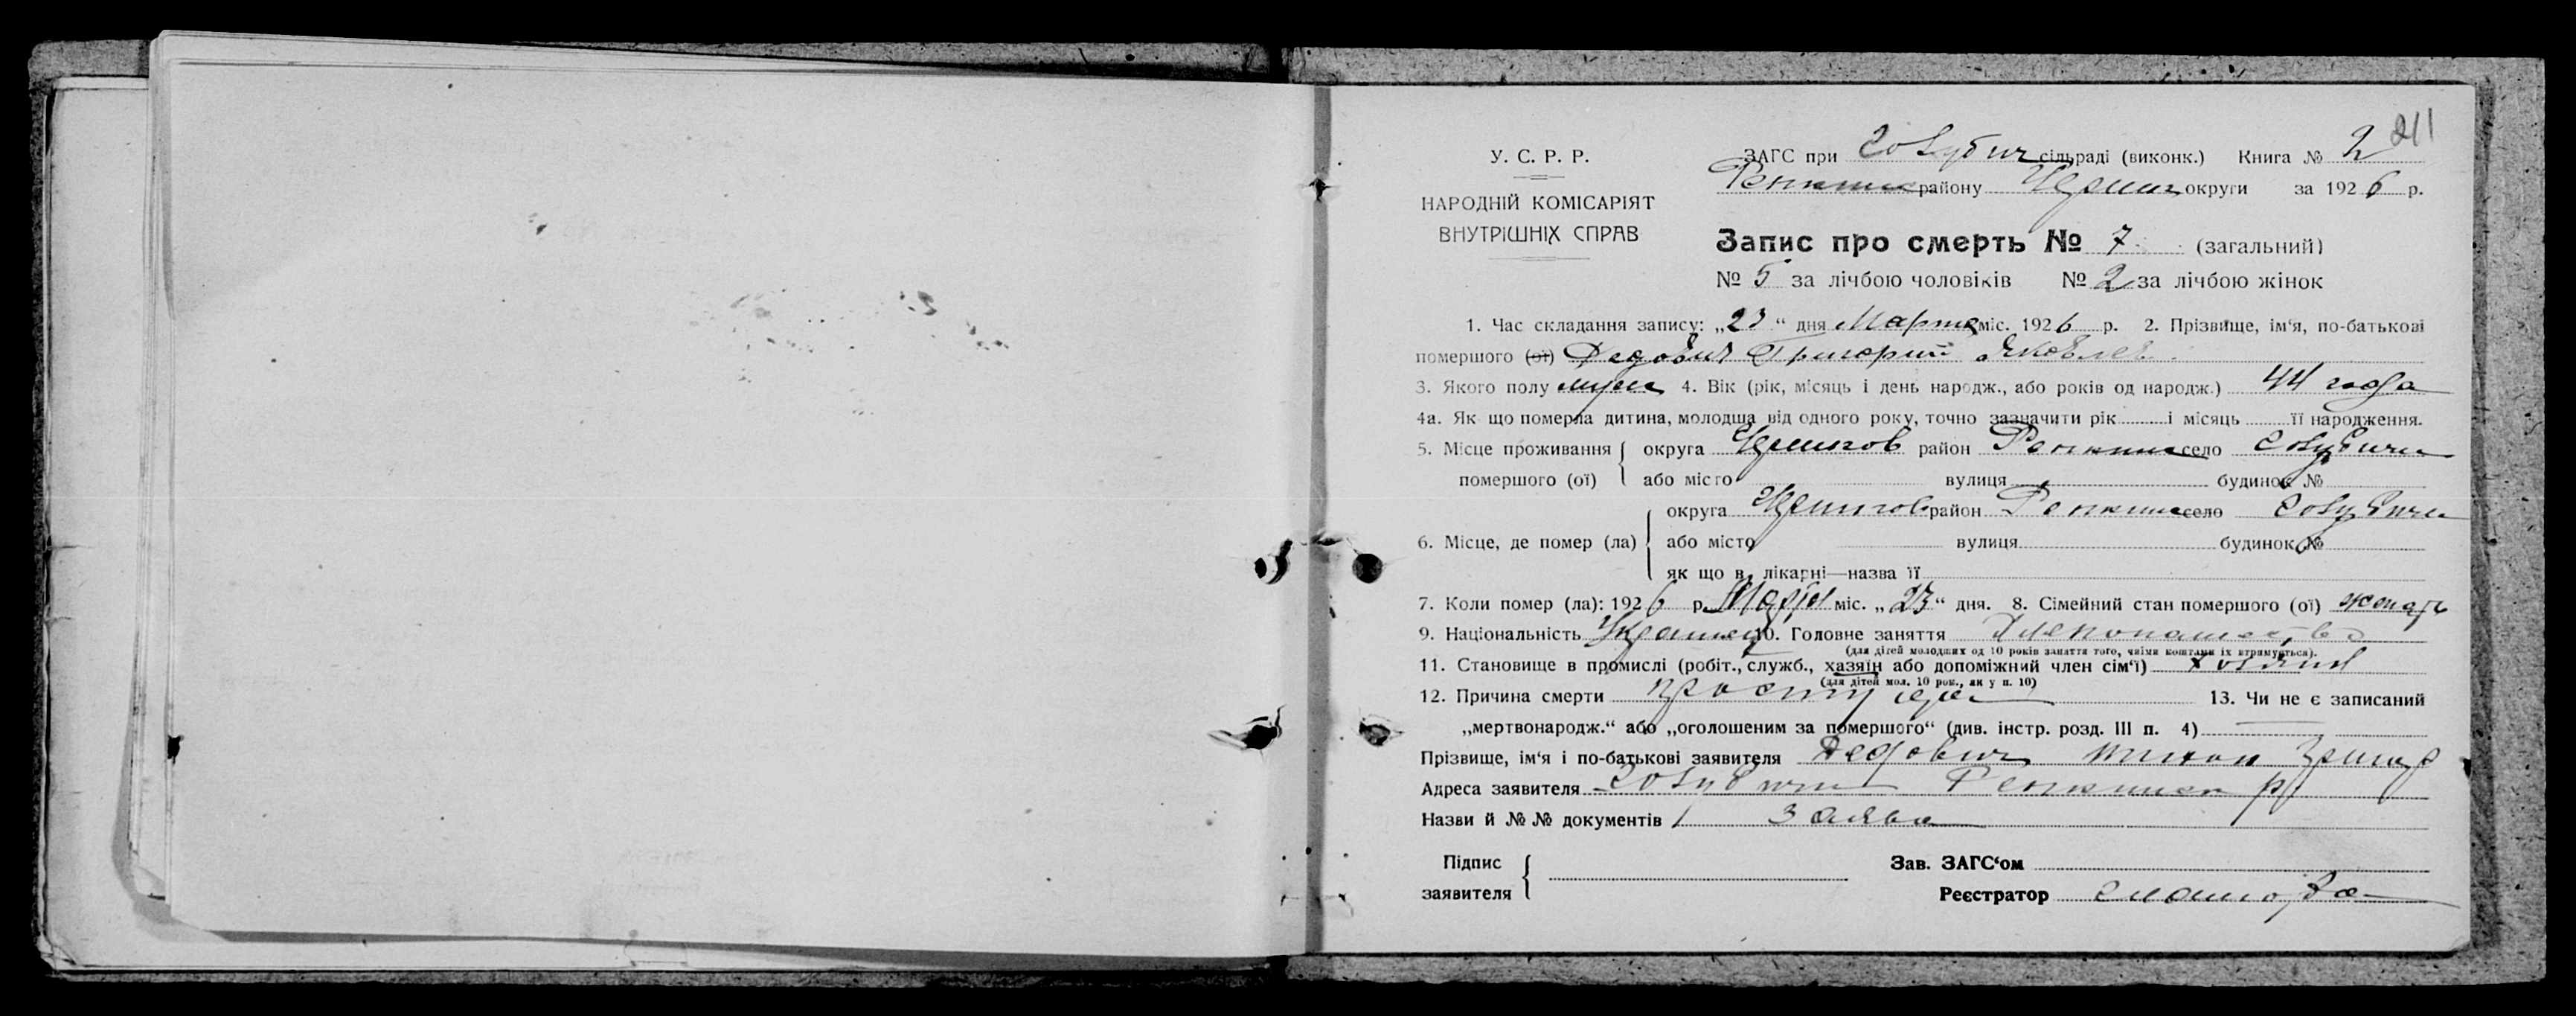 211
У. С. Р. Р.
НАРОДНІЙ КОМІСАРІЯТ
ВНУТРІШНІХ СПРАВ
ЗАГС при Голубич сільраді (виконк.) Книга № 2
Репкинс району Черниг округи за 1926 р.
Запис про смерть № 7 (загальний)
№ 5 за лічбою чоловіків № 2 за лічбою жінок
1. Час складання запису: „23“ дня Марта міс. 1926 р. 2. Прізвище, ім‘я, по-батькові
помершого (ої) Дедович Григорий Яковлев
3. Якого полу муж 4. Вік (рік, місяць і день народж., або років од народж.) 44 года
4а. Як що померла дитина, молодша від одного року, точно зазначити рік і місяць її народження.
5. Місце проживання помершого (ої) округа Чернигов район Репкинс село Голубичи
або місто вулиця будинок №
6. Місце, де помер (ла) округа Чернигов район Репкинс село Голубичи
або місто вулиця будинок №
як що в лікарні—назва її
7. Коли помер (ла): 1926 р. Марта міс. „23“ дня. 8. Сімейний стан помершого (ої) женат
9. Національність Украинец 10. Головне заняття Хлебопашество
(для дітей молодших од 10 років заняття того, чиїми коштами їх втримується).
11. Становище в промислі (робіт., служб., хазяїн або допоміжний член сім‘ї) хозяин
(для дітей мол. 10 рок., як у п. 10)
12. Причина смерти простуда 13. Чи не є записаний
„мертвонародж.“ або „оголошеним за помершого“ (див. інстр. розд. III п. 4)
Прізвище, ім‘я і по-батькові заявителя Дедович Григор
Адреса заявителя Голубичи Репкинск р
Назви й №№ документів 1 Заява
Підпис заявителя
Зав. ЗАГС‘ом
Реєстратор